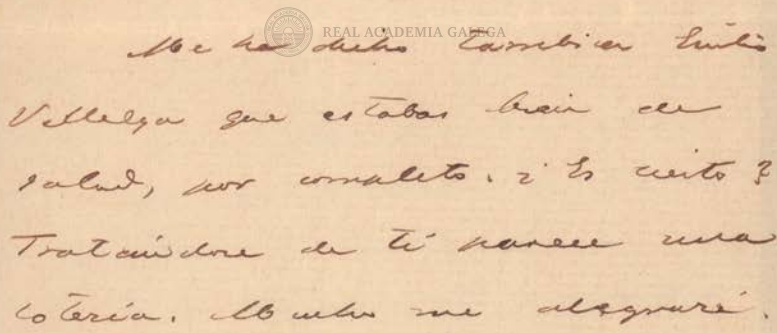 REAL ACADEMIA GALEGA
Me ha dicho también Emilio
Villelga que estabas bien de
salud, por completo. ¿Es cierto?
Tratándose de ti parece una
lotería. Mucho me alegraré.